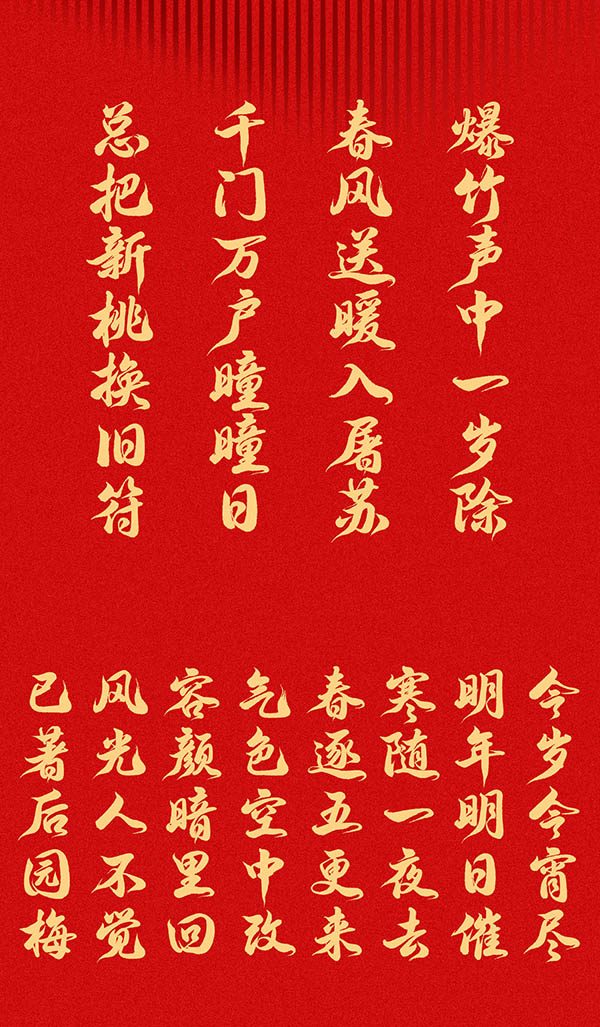 爆竹声中一岁除
春风送暖入屠苏
千门万户瞳瞳日
总把新桃换旧符
今岁今宵尽
明年明日催
寒随一夜去
春逐五更来
气色空中改
容颜暗里回
风光人不觉
已著后园梅